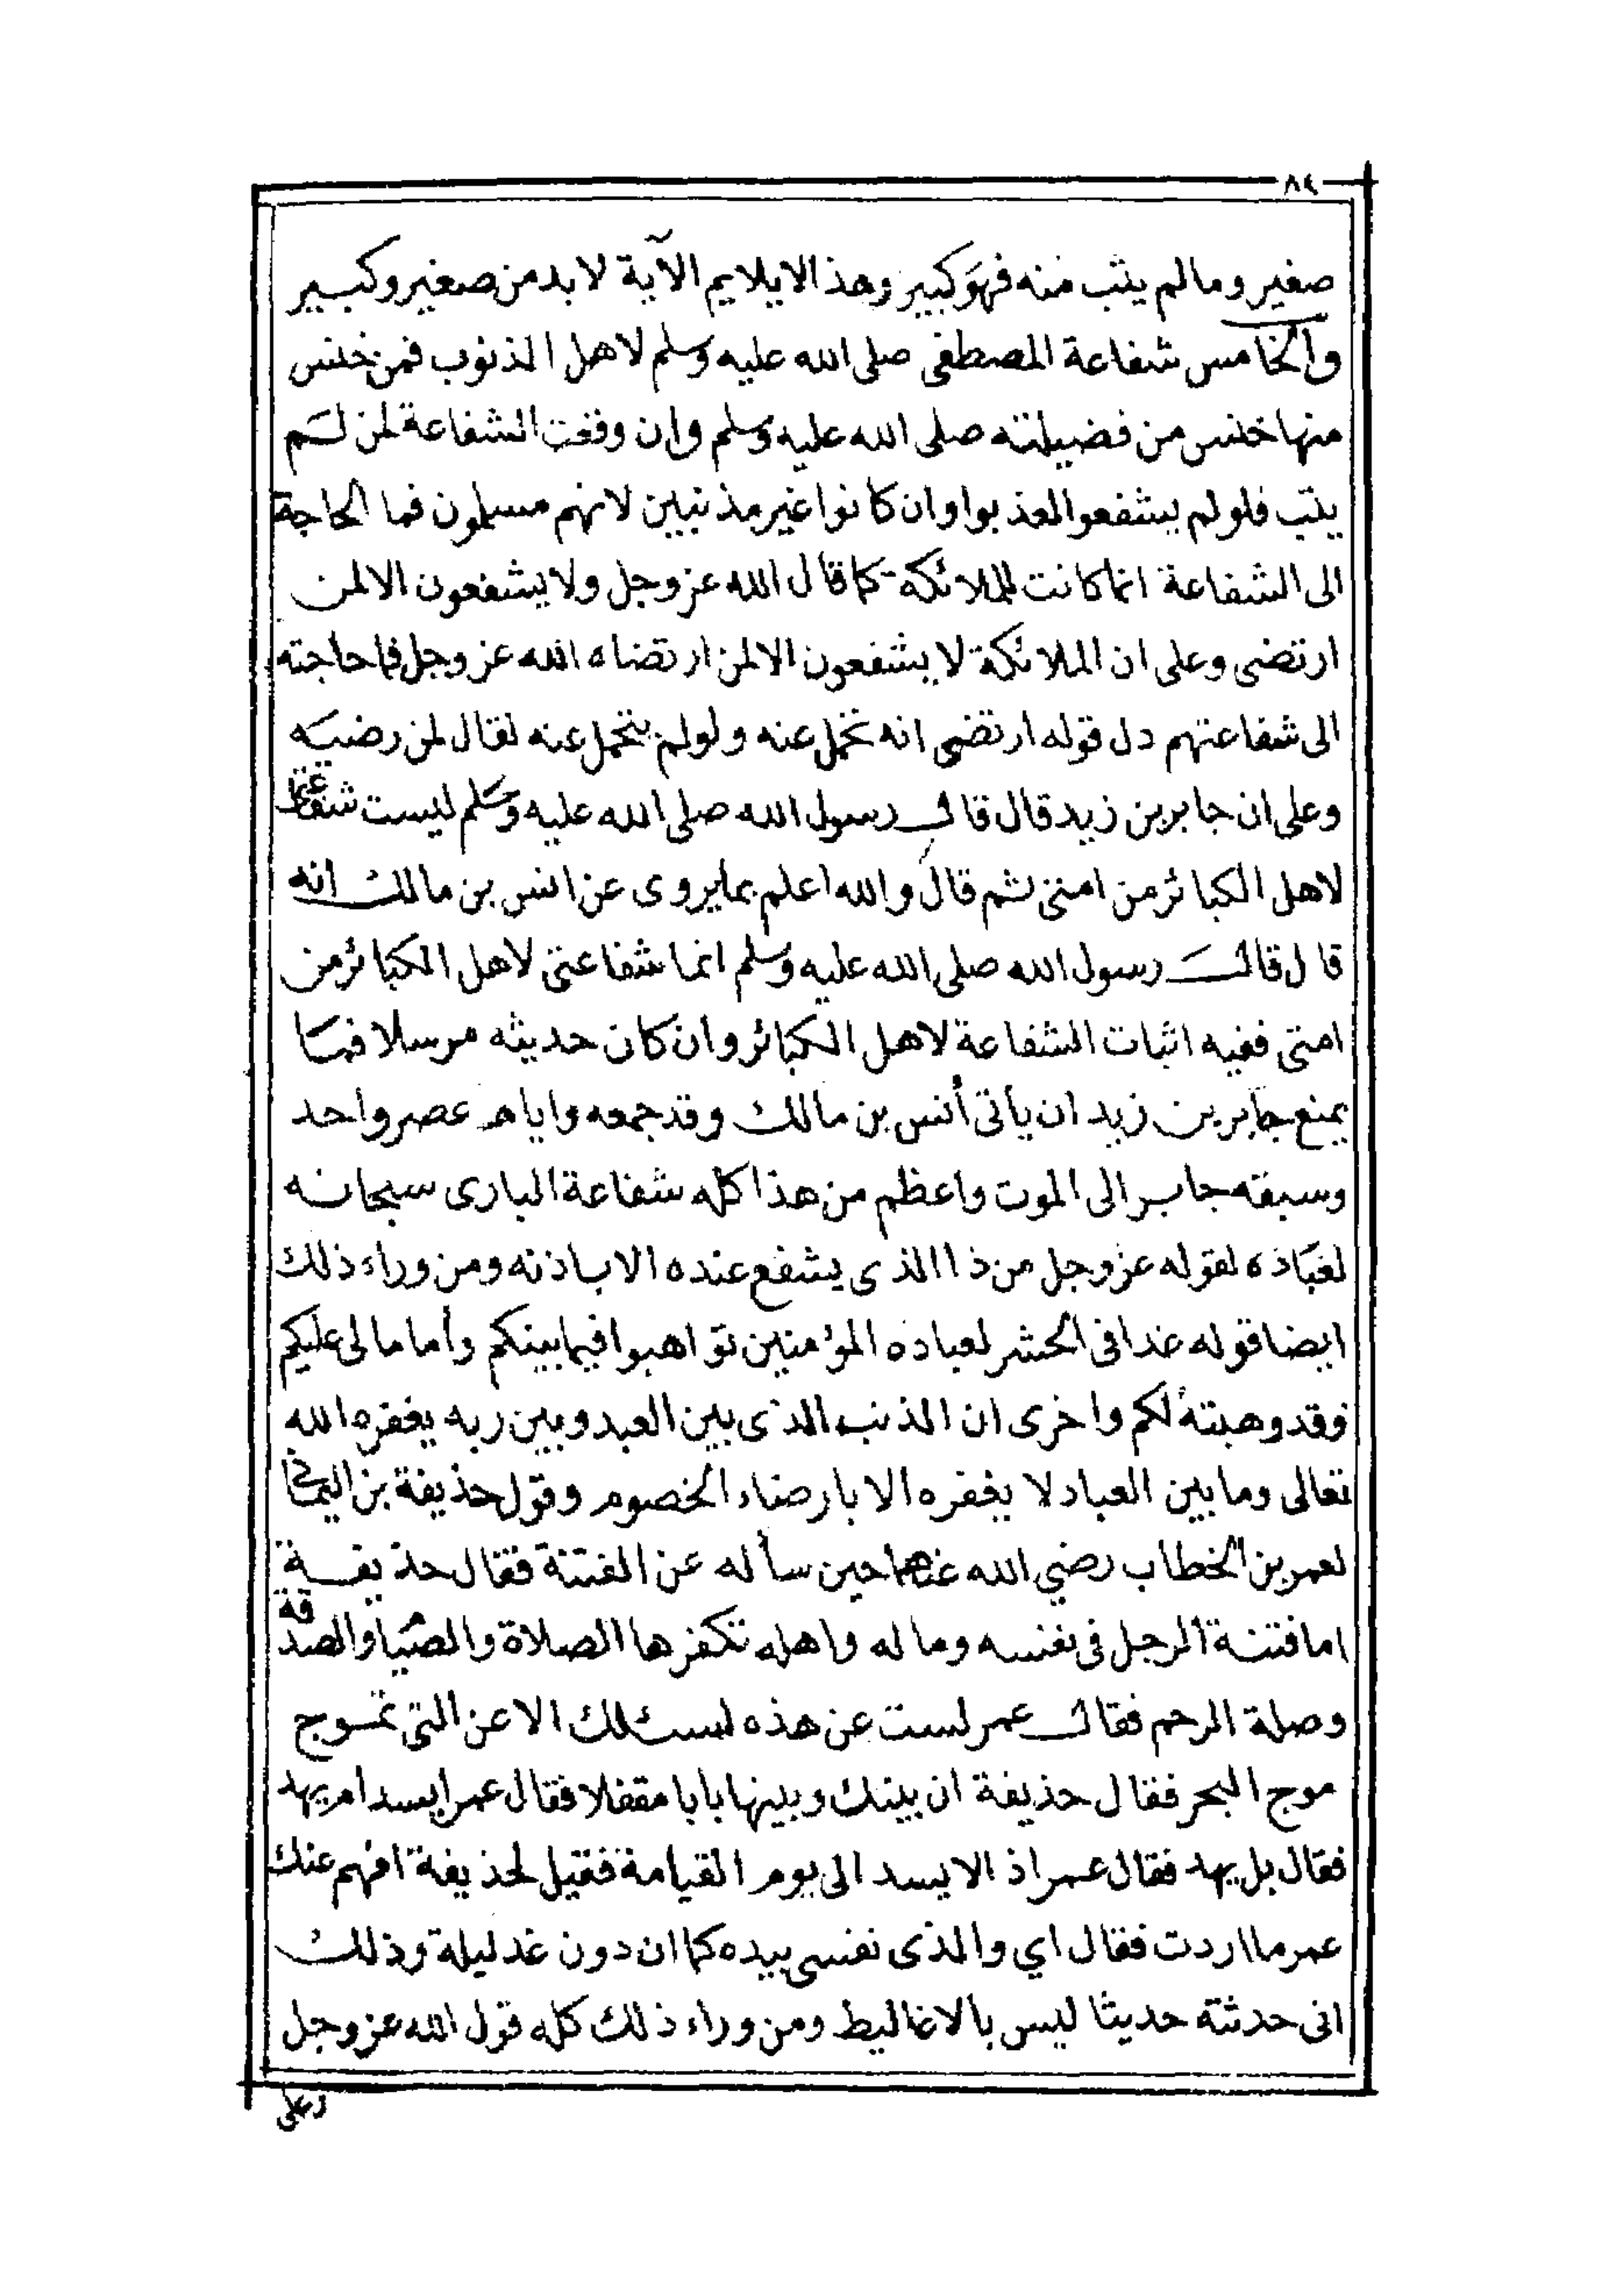 ٨٤
صغير ومالم يتب منه فهو كبير وهذا لا يلايم الآية لابد من صغير وكبير
والخامس شفاعة المصطفى صلى الله عليه وسلم لاهل الذنوب فمن خنس
منها خنس من فضيلته صلى الله عليه وسلم وان وقعت الشفاعة لمن لم
يتب فلولم يشفعوا لعذبوا وان كانوا غير مذنبين لانهم مسلمون فما الحاجة
الى الشفاعة انما كانت للملائكة كما قال الله عز وجل ولا يشفعون الا لمن
ارتضى وعلى ان الملائكة لا يشفعون الا لمن ارتضاه الله عز وجل فما حاجته
الى شفاعتهم دل قوله ارتضى انه تحمل عنه ولولم يتحمل عنه لقال لمن رضيه
وعلى ان جابر بن زيد قال قال رسول الله صلى الله عليه وسلم ليست شفاعتي
لاهل الكبائر من امتى ثم قال والله اعلم بما يروى عن انس بن مالك انه
قال قال رسول الله صلى الله عليه وسلم انما شفاعتى لاهل الكبائر من
امتى ففيه اثبات الشفاعة لاهل الكبائر وان كان حديثه مرسلا فما
يمنع جابر بن زيد ان يأتى أنس بن مالك وقد جمعه واياه عصر واحد
وسبقه جابر الى الموت واعظم من هذا كله شفاعة البارى سبحانه
لعباده لقوله عز وجل من ذا الذى يشفع عنده الا باذنه ومن وراء ذلك
ايضا قوله غدا فى الحشر لعباده المؤمنين تواهبوا فيما بينكم وأما مالى عليكم
فقد وهبته لكم واخرى ان الذنب الذى بين العبد وبين ربه يغفره الله
تعالى وما بين العباد لا يغفره الا بارضاء الخصوم وقول حذيفة بن اليمان
لعمر بن الخطاب رضي الله عنهما حين سأله عن الفتنة فقال حذيفة
اما فتنة الرجل فى نفسه وماله واهله تكفرها الصلاة والصيام والصدقة
وصلة الرحم فقال عمر لست عن هذه اسئلك الا عن التى تموج
موج البحر فقال حذيفة ان بينك وبينها بابا مقفلا فقال عمر ايسد ام يهد
فقال بل يهد فقال عمر اذ الا يسد الى يوم القيامة فقيل لحذيفة افهم عنك
عمر ما اردت فقال اي والذى نفسى بيده كما ان دون غد ليلة وذلك
انى حدثته حديثا ليس بالاغاليط ومن وراء ذلك كله قول الله عز وجل
وعلى